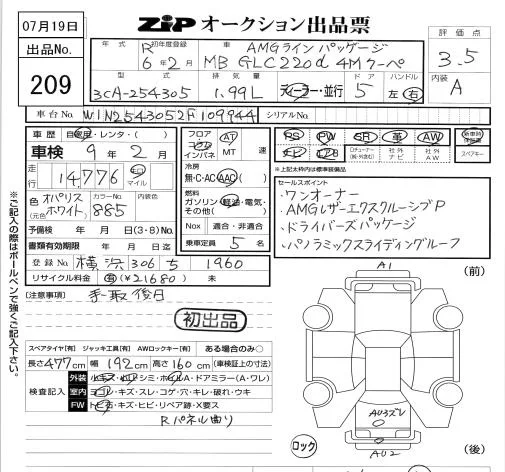 07月19日
出品No.
209
ZiP オークション出品票
評価点
3.5
内装
A
年式
R 初年度登録
6年2月
車名
AMGライン パッケージ
MB GLC220d 4Mクーペ
型式
3CA-254305
排気量
1.99L
ディーラー・並行
ドア
5
ハンドル
左・右
車台No.
W1N2543052F109944
シリアルNo.
車歴
自家用・レンタ・( )
車検
9年2月
走行
14,776
km
マイル
色
オパリス
ホワイト
(元色)
カラーNo.
885
内装色
予備検
年 月 日(3・8)No.
書類有効期限
年 月 日迄
登録No.
横浜 306 ち 1960
リサイクル料金
有(¥21680) 未
フロア
コラム
インパネ
AT
MT
速
冷房
無・C・AC・AAC
燃料
ガソリン・軽油・電気・
その他( )
Nox
適合・非適合
乗車定員
5名
PS
PW
SR
革
AW
新車時保証書
ナビ
TV
社外ナビ
社外AW
スペアキー
*上記太枠内は装備品
セールスポイント
・ワンオーナー
・AMGレザーエクスクルーシブP
・ドライバーズパッケージ
・パノラミックスライディングルーフ
[注意事項]
手取後日
初出品
スペアタイヤ[有] ジャッキ工具[有] AWロックキー[有] ある場合のみ○
長さ477cm 幅192cm 高さ160cm(車検証上の寸法)
検査記入
外装
小キズ・凹・シミ・ホイルA・ドアミラー(A・ワレ)
室内
ヨゴレ・キズ・スレ・コゲ・穴・キレ・破れ・ウキ
FW
トビ石・キズ・ヒビ・リペア跡・X要ス
Rパネル曲り
A1
(前)
AU3ズレ
ロック
AU2
(後)
※ご記入の際はボールペンで強くご記入下さい。